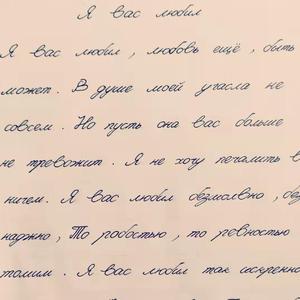 Я вас любил
Я вас любил, любовь ещё, быть
может. В душе моей угасла не
совсем. Но пусть она вас больше
не тревожит. Я не хочу печалить в
ничем. Я вас любил безмолвно, без
наджно, То робостью, то ревностью
томим. Я вас любил так искренно